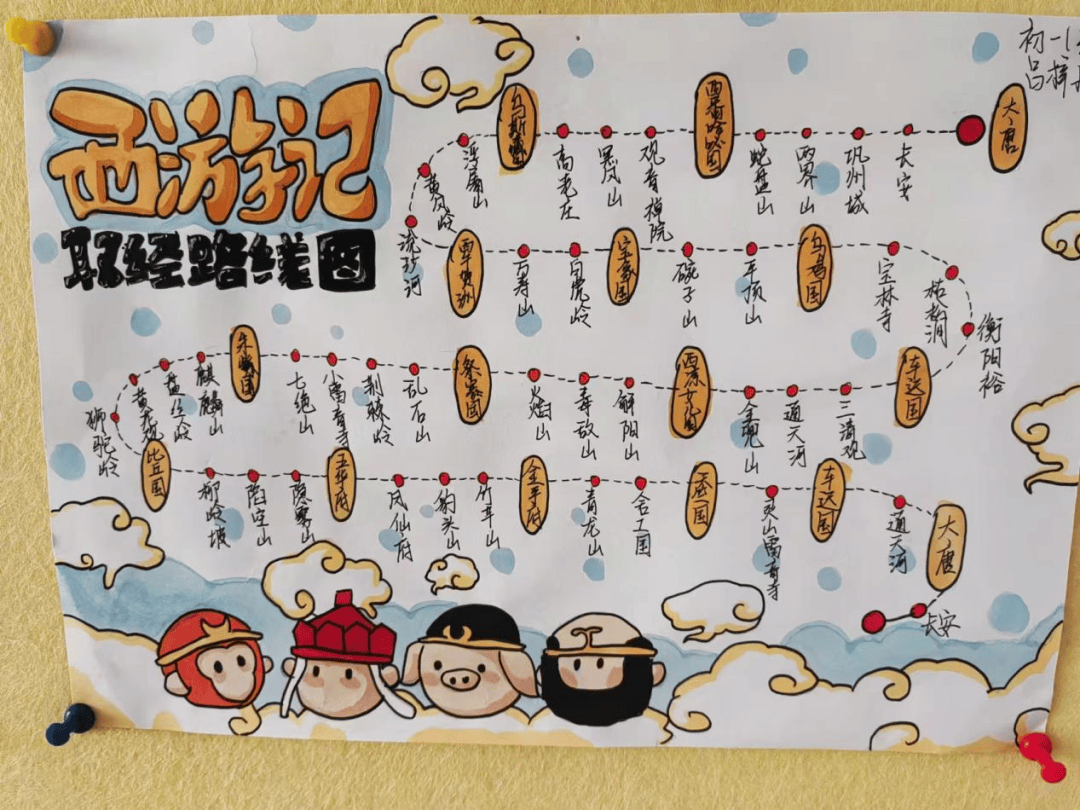 西游记
取经路线图
初一(
吕梓
大唐
长安
巩州城
两界山
蛇盘山
西番哈咇国
观音禅院
黑风山
高老庄
乌斯藏国
浮屠山
黄风岭
流沙河
西贺洲
万寿山
白虎岭
宝象国
碗子山
平顶山
乌鸡国
宝林寺
枯松涧
衡阳裕
车迟国
三清观
通天河
金兜山
西凉女国
解阳山
毒敌山
火焰山
祭赛国
乱石山
荆棘岭
小雷音寺
七绝山
朱紫国
麒麟山
盘丝岭
黄花观
狮驼岭
比丘国
柳岭坡
陷空山
隐雾山
玉华府
凤仙府
豹头山
竹节山
金平府
青龙山
舍卫国
天竺国
灵山雷音寺
车迟国
通天河
大唐
长安